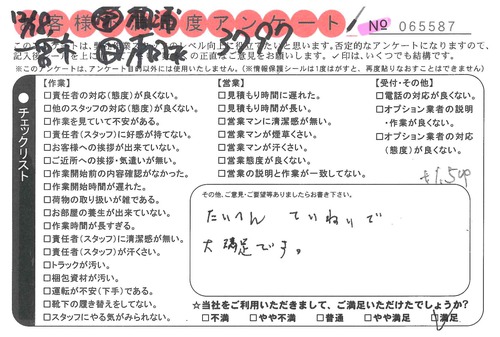 お客様満足度アンケート
№ 065587
このアンケートは、
記入後
否定的なアンケートになりますので、
の正直なご意見をお願いします。✓印は、いくつでも結構です。
※このアンケートは、アンケート目的以外には使用いたしません。(※情報保護シールは1度はがすと、再度貼りなおすことはできません。)
チェックリスト
【作業】
□責任者の対応(態度)が良くない。
□他のスタッフの対応(態度)が良くない。
□作業を見ていて不安がある。
□責任者(スタッフ)に好感が持てない。
□お客様への挨拶が出来ていない。
□ご近所への挨拶・気遣いが無い。
□作業開始前の内容確認がなかった。
□作業開始時間が遅れた。
□荷物の取り扱いが雑である。
□お部屋の養生が出来ていない。
□作業時間が長すぎる。
□責任者(スタッフ)に清潔感が無い。
□責任者(スタッフ)が汗くさい。
□トラックが汚い。
□梱包資材が汚い。
□運転が不安(下手)である。
□靴下の履き替えをしてない。
□スタッフにやる気がみられない。
【営業】
□見積もり時間に遅れた。
□見積もり時間が長い。
□営業マンに清潔感が無い。
□営業マンが煙草くさい。
□営業マンが汗くさい。
□営業態度が良くない。
□営業の説明と作業が一致してない。
【受付・その他】
□電話の対応が良くない。
□オプション業者の説明
・作業が良くない。
□オプション業者の対応
(態度)が良くない。
その他、ご意見・ご要望等ありましたらお書き下さい。
たいへん ていねいで
大満足です。
☆当社をご利用いただきまして、ご満足いただけたでしょうか?
□不満 □やや不満 □普通 □やや満足 □満足